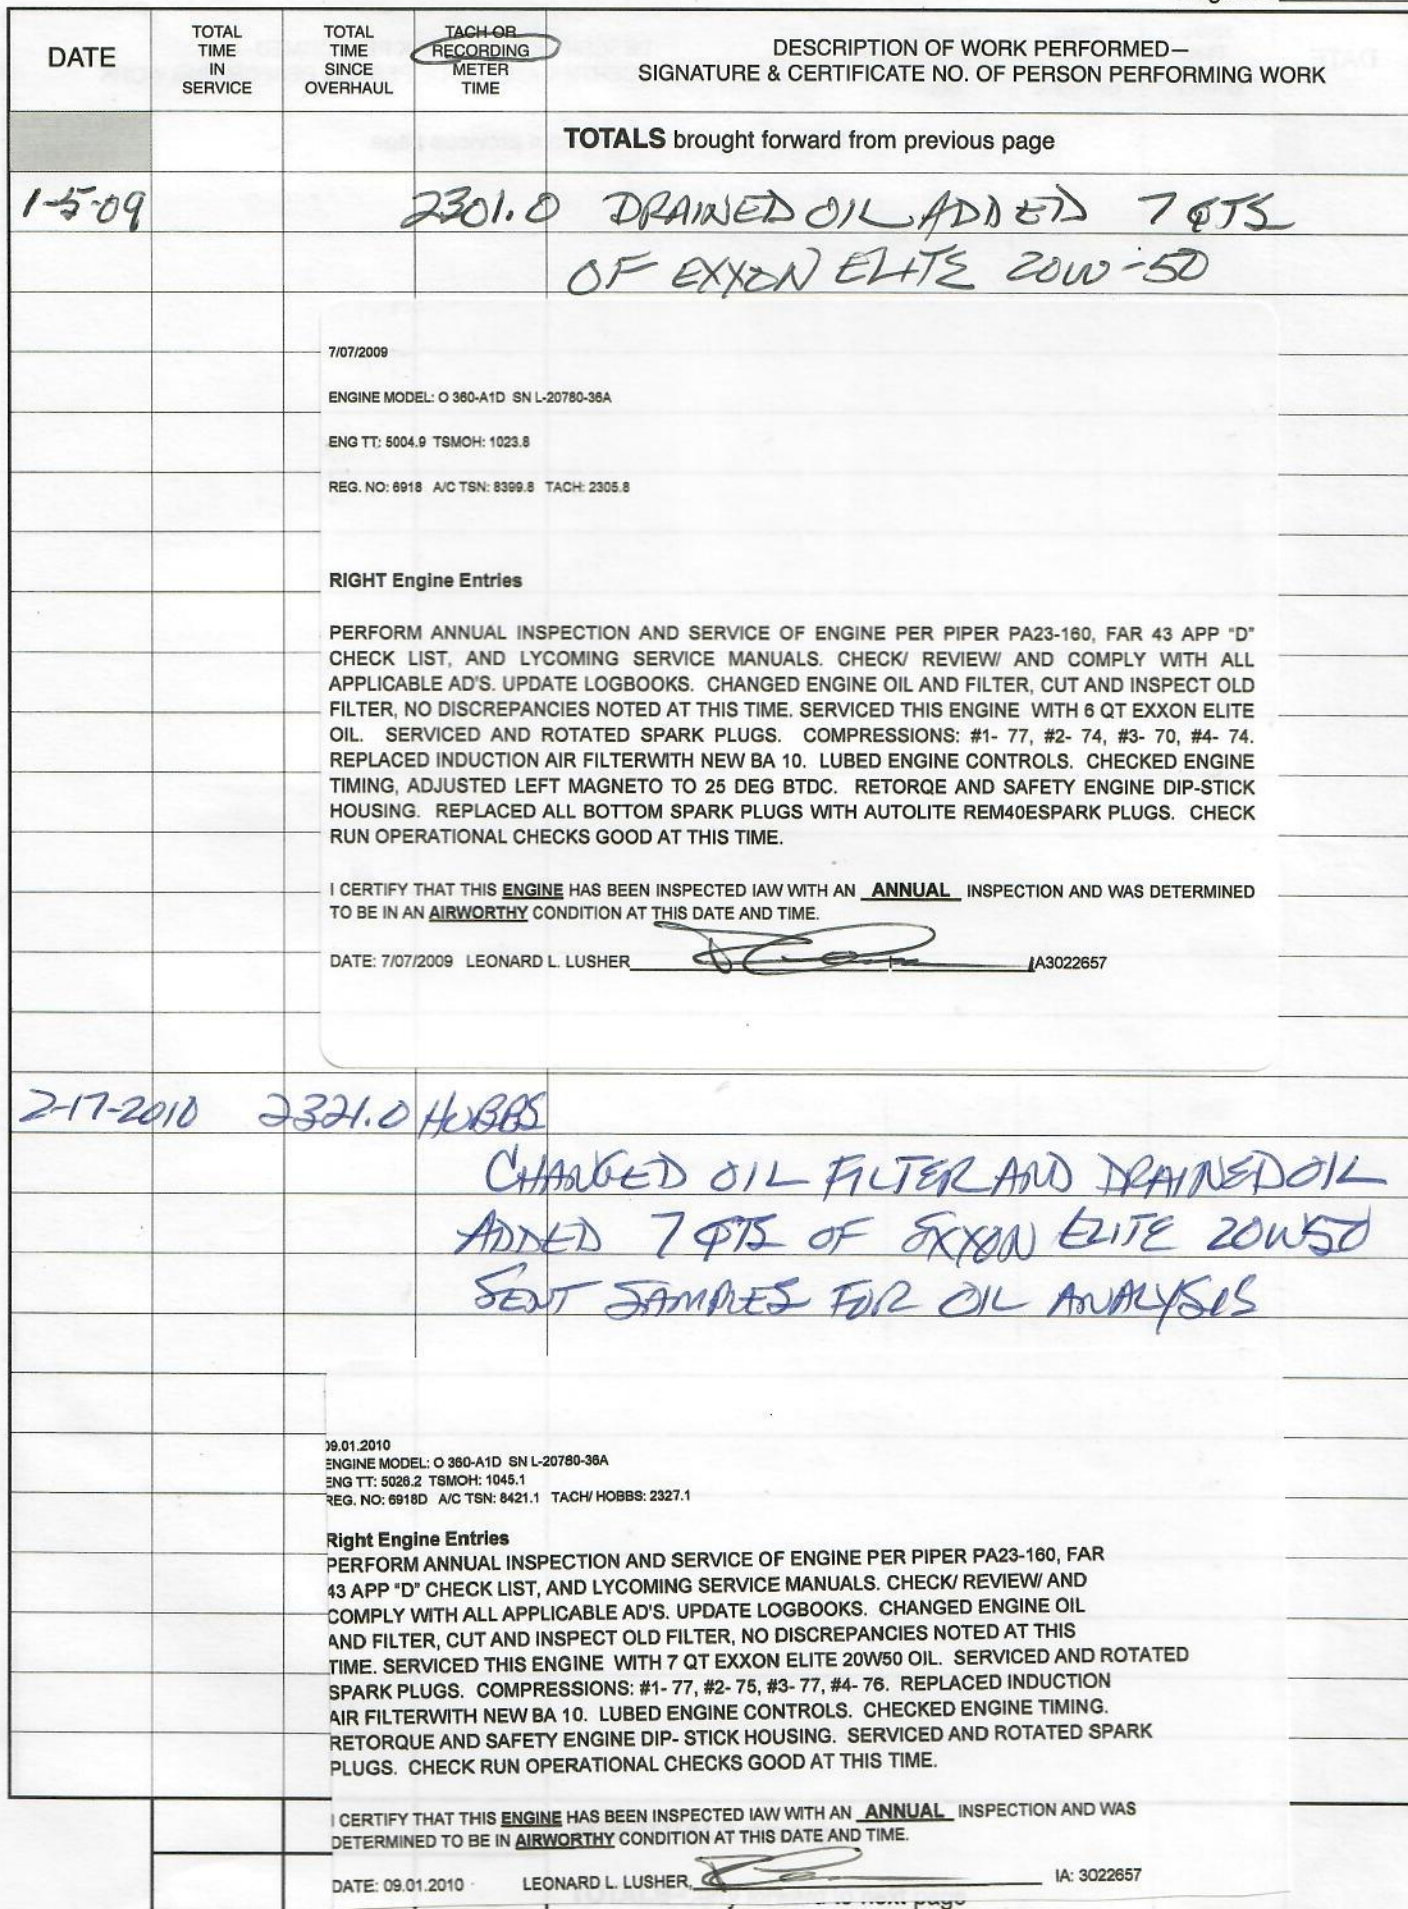 DATE
TOTAL TIME IN SERVICE
TOTAL TIME SINCE OVERHAUL
TACH OR RECORDING METER TIME
DESCRIPTION OF WORK PERFORMED—
SIGNATURE & CERTIFICATE NO. OF PERSON PERFORMING WORK
TOTALS brought forward from previous page
1-5-09 2301.0 DRAINED OIL ADDED 7 QTS
OF EXXON ELITE 20W-50
7/07/2009
ENGINE MODEL: O 360-A1D SN L-20780-36A
ENG TT: 5004.9 TSMOH: 1023.8
REG. NO: 6918 A/C TSN: 8399.8 TACH: 2305.8
RIGHT Engine Entries
PERFORM ANNUAL INSPECTION AND SERVICE OF ENGINE PER PIPER PA23-160, FAR 43 APP "D"
CHECK LIST, AND LYCOMING SERVICE MANUALS. CHECK/ REVIEW/ AND COMPLY WITH ALL
APPLICABLE AD'S. UPDATE LOGBOOKS. CHANGED ENGINE OIL AND FILTER, CUT AND INSPECT OLD
FILTER, NO DISCREPANCIES NOTED AT THIS TIME. SERVICED THIS ENGINE WITH 6 QT EXXON ELITE
OIL. SERVICED AND ROTATED SPARK PLUGS. COMPRESSIONS: #1- 77, #2- 74, #3- 70, #4- 74.
REPLACED INDUCTION AIR FILTERWITH NEW BA 10. LUBED ENGINE CONTROLS. CHECKED ENGINE
TIMING, ADJUSTED LEFT MAGNETO TO 25 DEG BTDC. RETORQE AND SAFETY ENGINE DIP-STICK
HOUSING. REPLACED ALL BOTTOM SPARK PLUGS WITH AUTOLITE REM40ESPARK PLUGS. CHECK
RUN OPERATIONAL CHECKS GOOD AT THIS TIME.
I CERTIFY THAT THIS ENGINE HAS BEEN INSPECTED IAW WITH AN ANNUAL INSPECTION AND WAS DETERMINED
TO BE IN AN AIRWORTHY CONDITION AT THIS DATE AND TIME.
DATE: 7/07/2009 LEONARD L. LUSHER IA3022657
2-17-2010 2321.0 HOBBS
CHANGED OIL FILTER AND DRAINED OIL
ADDED 7 QTS OF EXXON ELITE 20W50
SENT SAMPLES FOR OIL ANALYSIS
09.01.2010
ENGINE MODEL: O 360-A1D SN L-20780-36A
ENG TT: 5026.2 TSMOH: 1045.1
REG. NO: 6918D A/C TSN: 8421.1 TACH/ HOBBS: 2327.1
Right Engine Entries
PERFORM ANNUAL INSPECTION AND SERVICE OF ENGINE PER PIPER PA23-160, FAR
43 APP "D" CHECK LIST, AND LYCOMING SERVICE MANUALS. CHECK/ REVIEW/ AND
COMPLY WITH ALL APPLICABLE AD'S. UPDATE LOGBOOKS. CHANGED ENGINE OIL
AND FILTER, CUT AND INSPECT OLD FILTER, NO DISCREPANCIES NOTED AT THIS
TIME. SERVICED THIS ENGINE WITH 7 QT EXXON ELITE 20W50 OIL. SERVICED AND ROTATED
SPARK PLUGS. COMPRESSIONS: #1- 77, #2- 75, #3- 77, #4- 76. REPLACED INDUCTION
AIR FILTERWITH NEW BA 10. LUBED ENGINE CONTROLS. CHECKED ENGINE TIMING.
RETORQUE AND SAFETY ENGINE DIP- STICK HOUSING. SERVICED AND ROTATED SPARK
PLUGS. CHECK RUN OPERATIONAL CHECKS GOOD AT THIS TIME.
I CERTIFY THAT THIS ENGINE HAS BEEN INSPECTED IAW WITH AN ANNUAL INSPECTION AND WAS
DETERMINED TO BE IN AIRWORTHY CONDITION AT THIS DATE AND TIME.
DATE: 09.01.2010 LEONARD L. LUSHER, IA: 3022657